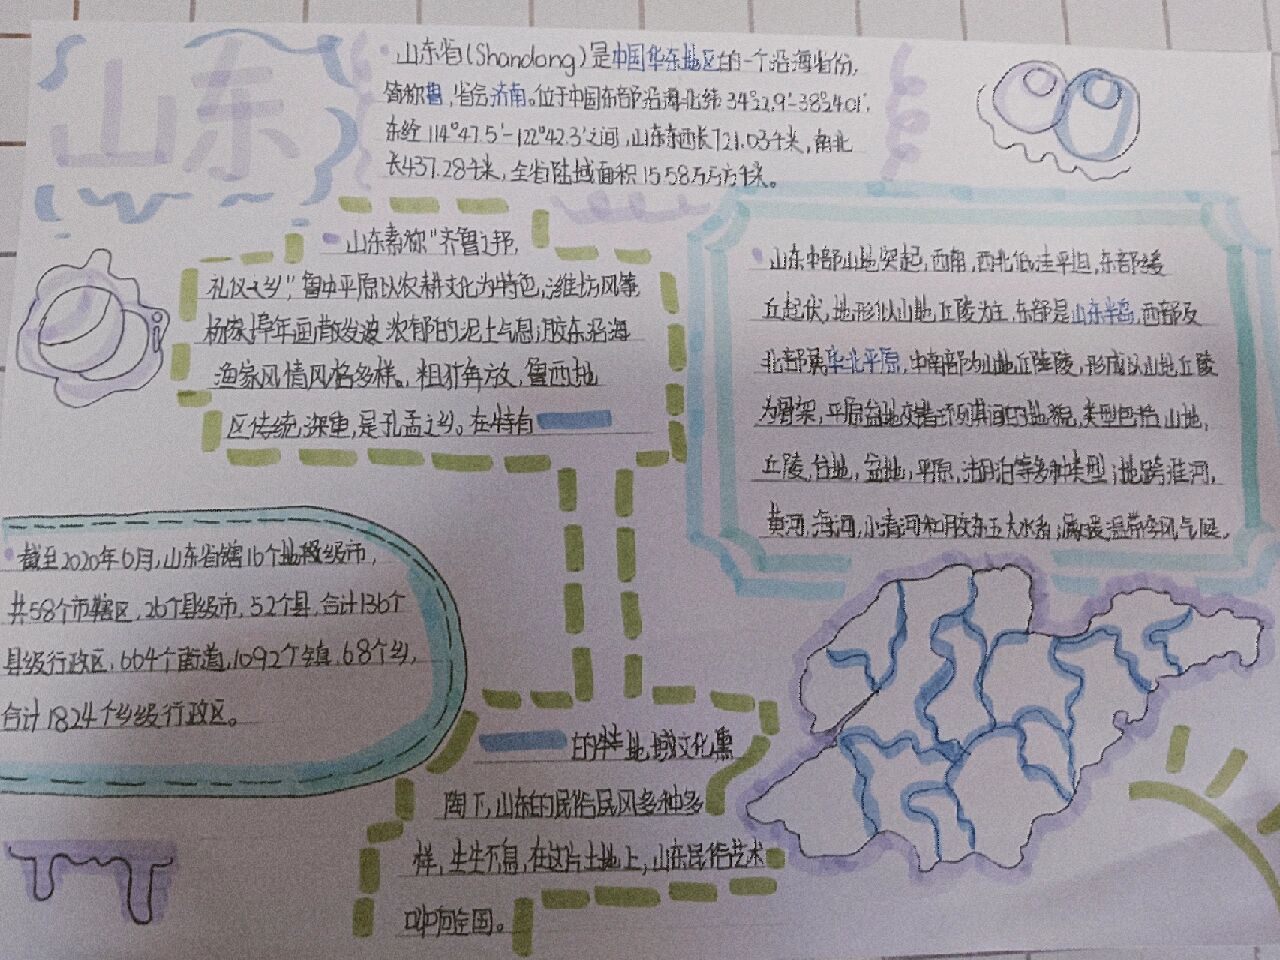 山东
山东省(Shandong)是中国华东地区的一个沿海省份,
简称鲁,省会济南。位于中国东部沿海北纬34°22.9′-38°24.01′,
东经114°47.5′-122°42.3′之间,山东东西长721.03千米,南北
长437.28千米,全省陆域面积15.58万平方千米。
山东素称"齐鲁之邦,
礼仪之乡",鲁中平原以农耕文化为特色,潍坊风筝
杨家埠年画散发浓郁的泥土气息,胶东沿海
渔家风情风格多样。粗犷奔放,鲁西地
区传统深重,是孔孟之乡。在特有
的特地域文化熏
陶下,山东的民俗民风多种多
样,生生不息,在这片土地上,山东民俗艺术
山东中部山地突起,西南,西北低洼平坦,东部缓
丘起伏,地形以山地丘陵为主,东部是山东半岛,西部及
北部属华北平原,中南部为山地丘陵陵,形成以山地丘陵
为骨架,平原盆地交错环列其间的地貌,类型包括山地,
丘陵,台地,盆地,平原,湖泊等多种类型;地跨淮河,
黄河,海河,小清河和胶东五大水系;属暖温带季风气候,
截至2020年6月,山东省辖16个地级市,
共58个市辖区,26个县级市,52个县,合计136个
县级行政区,664个街道,1092个镇,68个乡,
合计1824个乡级行政区。